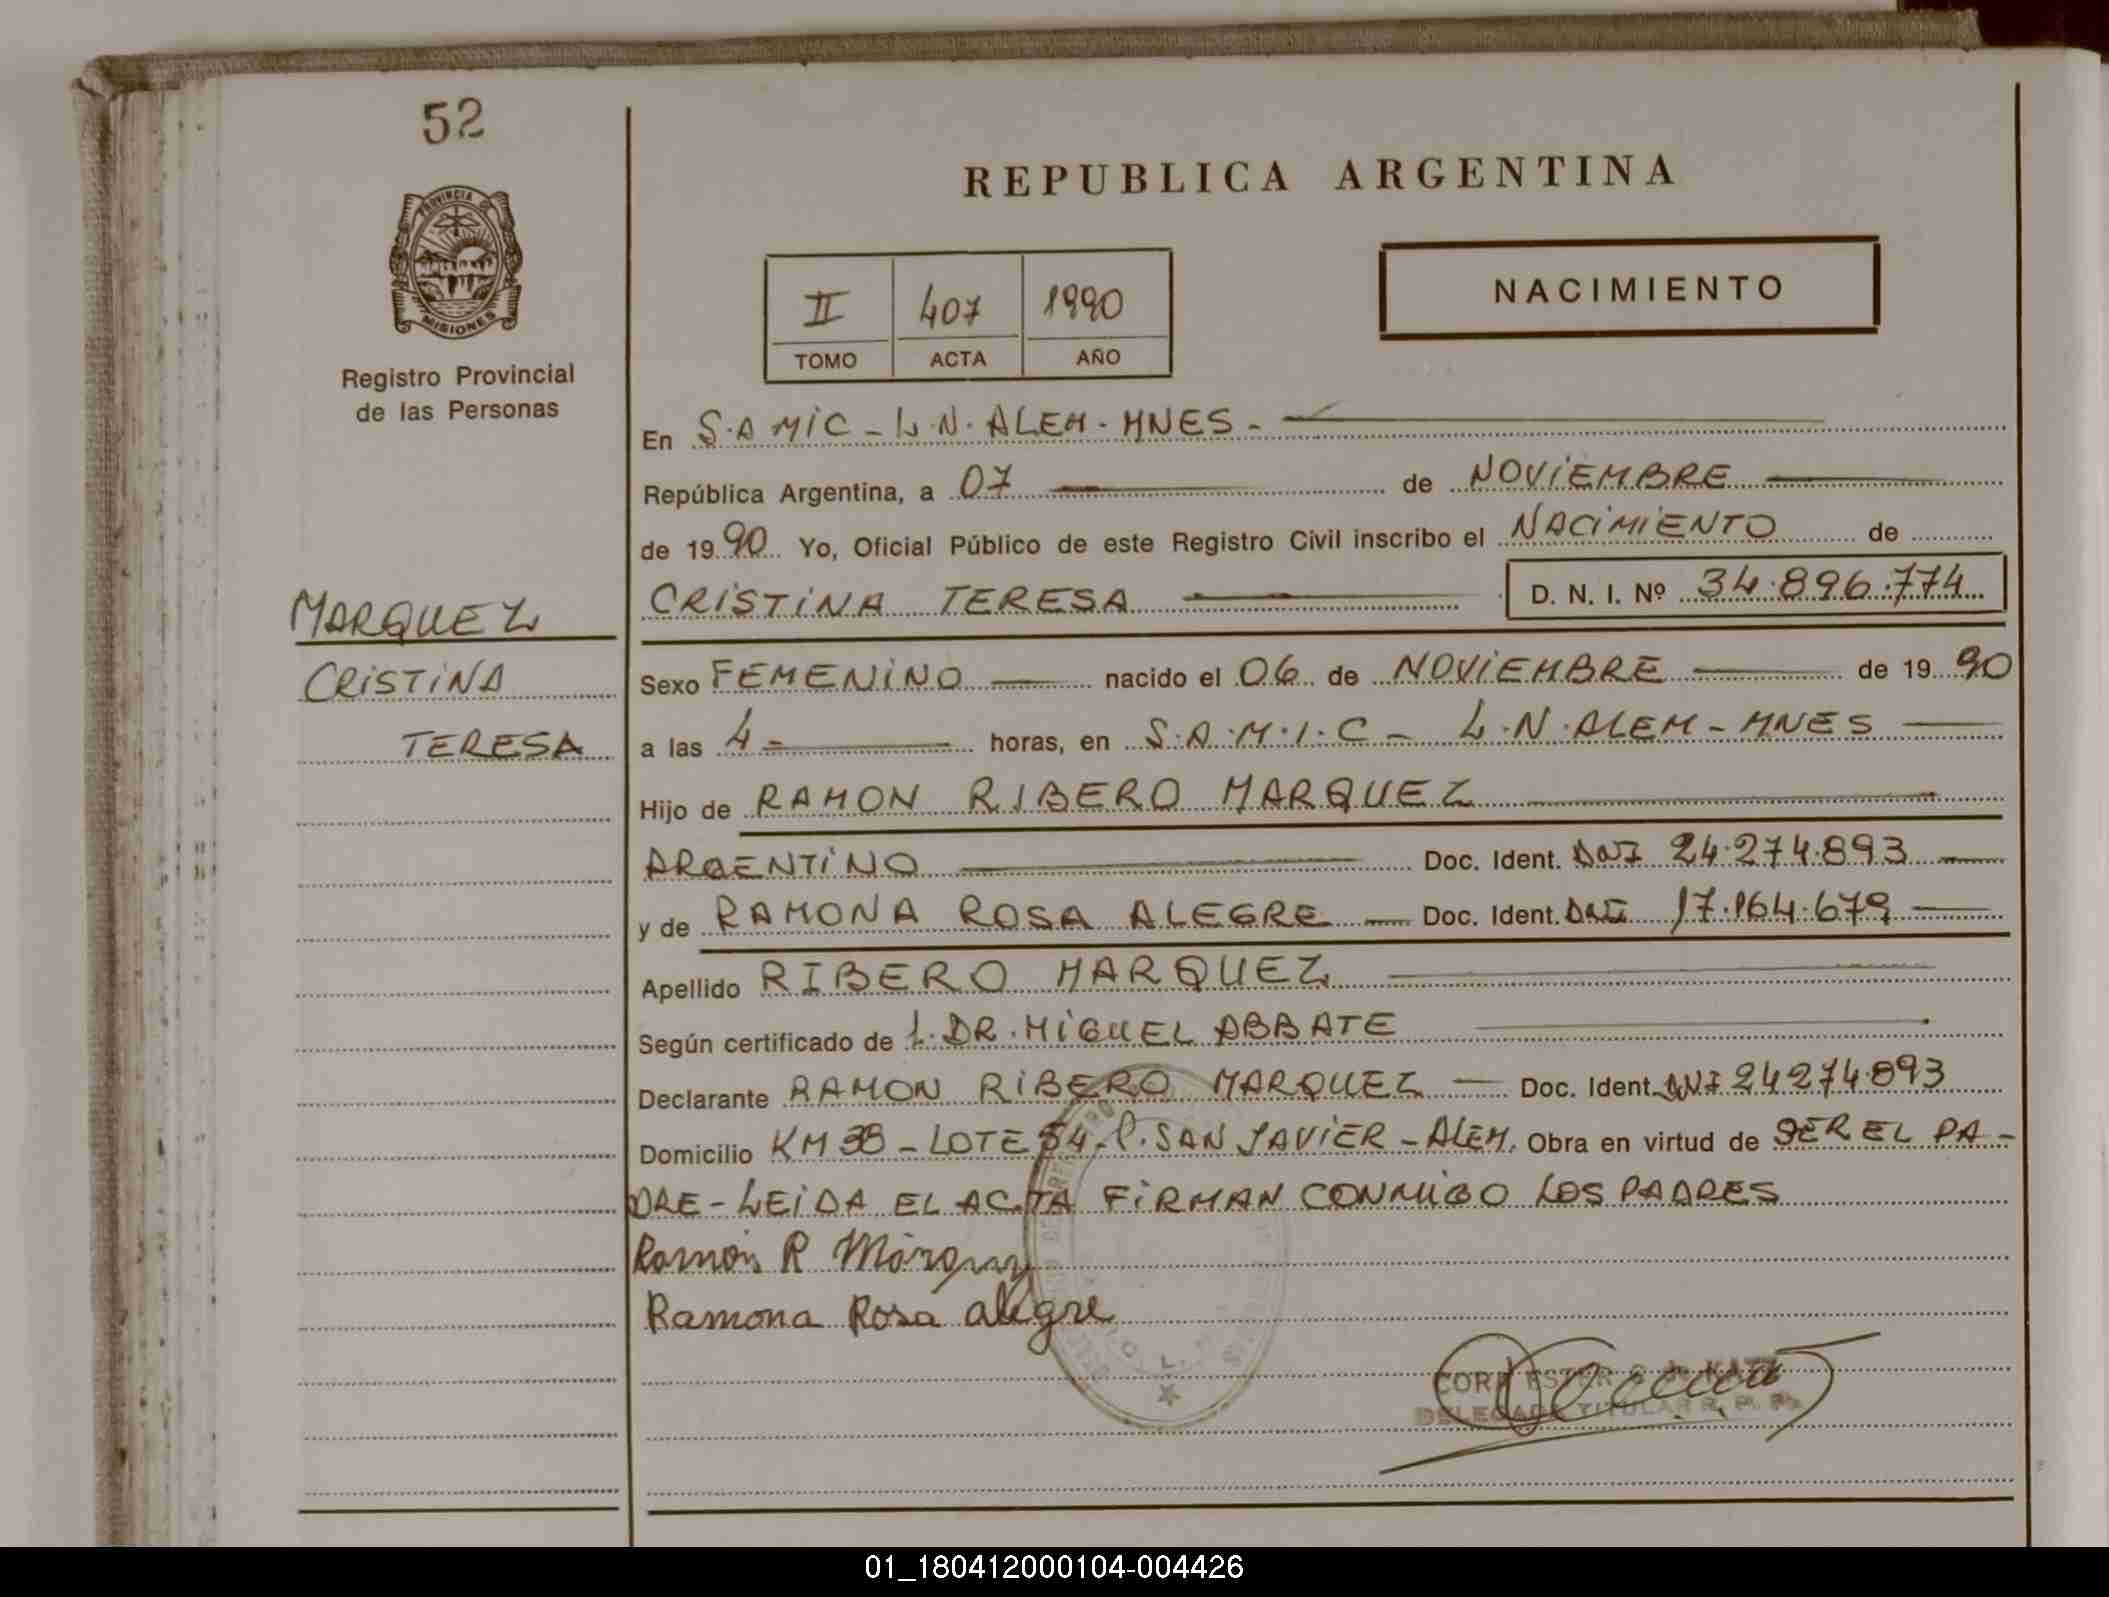 52
REPUBLICA ARGENTINA
PROVINCIA DE
MISIONES
Registro Provincial
de las Personas
II 407 1990
TOMO ACTA AÑO
NACIMIENTO
En S.A MIC - L.N. ALEM - MNES -
República Argentina, a 07 de NOVIEMBRE
de 1990 Yo, Oficial Público de este Registro Civil inscribo el NACIMIENTO de
CRISTINA TERESA D. N. I. Nº 34.896.774
MARQUEZ
CRISTINA
TERESA
Sexo FEMENINO nacido el 06 de NOVIEMBRE de 1990
a las 4 - horas, en S.A.M.I.C - L.N. ALEM - MNES
Hijo de RAMON RIBERO MARQUEZ
ARGENTINO Doc. Ident. DNI 24.274.893
y de RAMONA ROSA ALEGRE Doc. Ident. DNI 17.164.679
Apellido RIBERO MARQUEZ
Según certificado de 1. DR. MIGUEL ABBATE
Declarante RAMON RIBERO MARQUEZ Doc. Ident. DNI 24274.893
Domicilio KM 38 - LOTE 54 - P. SAN JAVIER - ALEM. Obra en virtud de SER EL PA-
DRE - LEIDA EL ACTA FIRMAN CONMIGO LOS PADRES
Ramón R Márquez
Ramona Rosa Alegre
ESTER
DELEGADA TITULAR R. P. P.
01_180412000104-004426